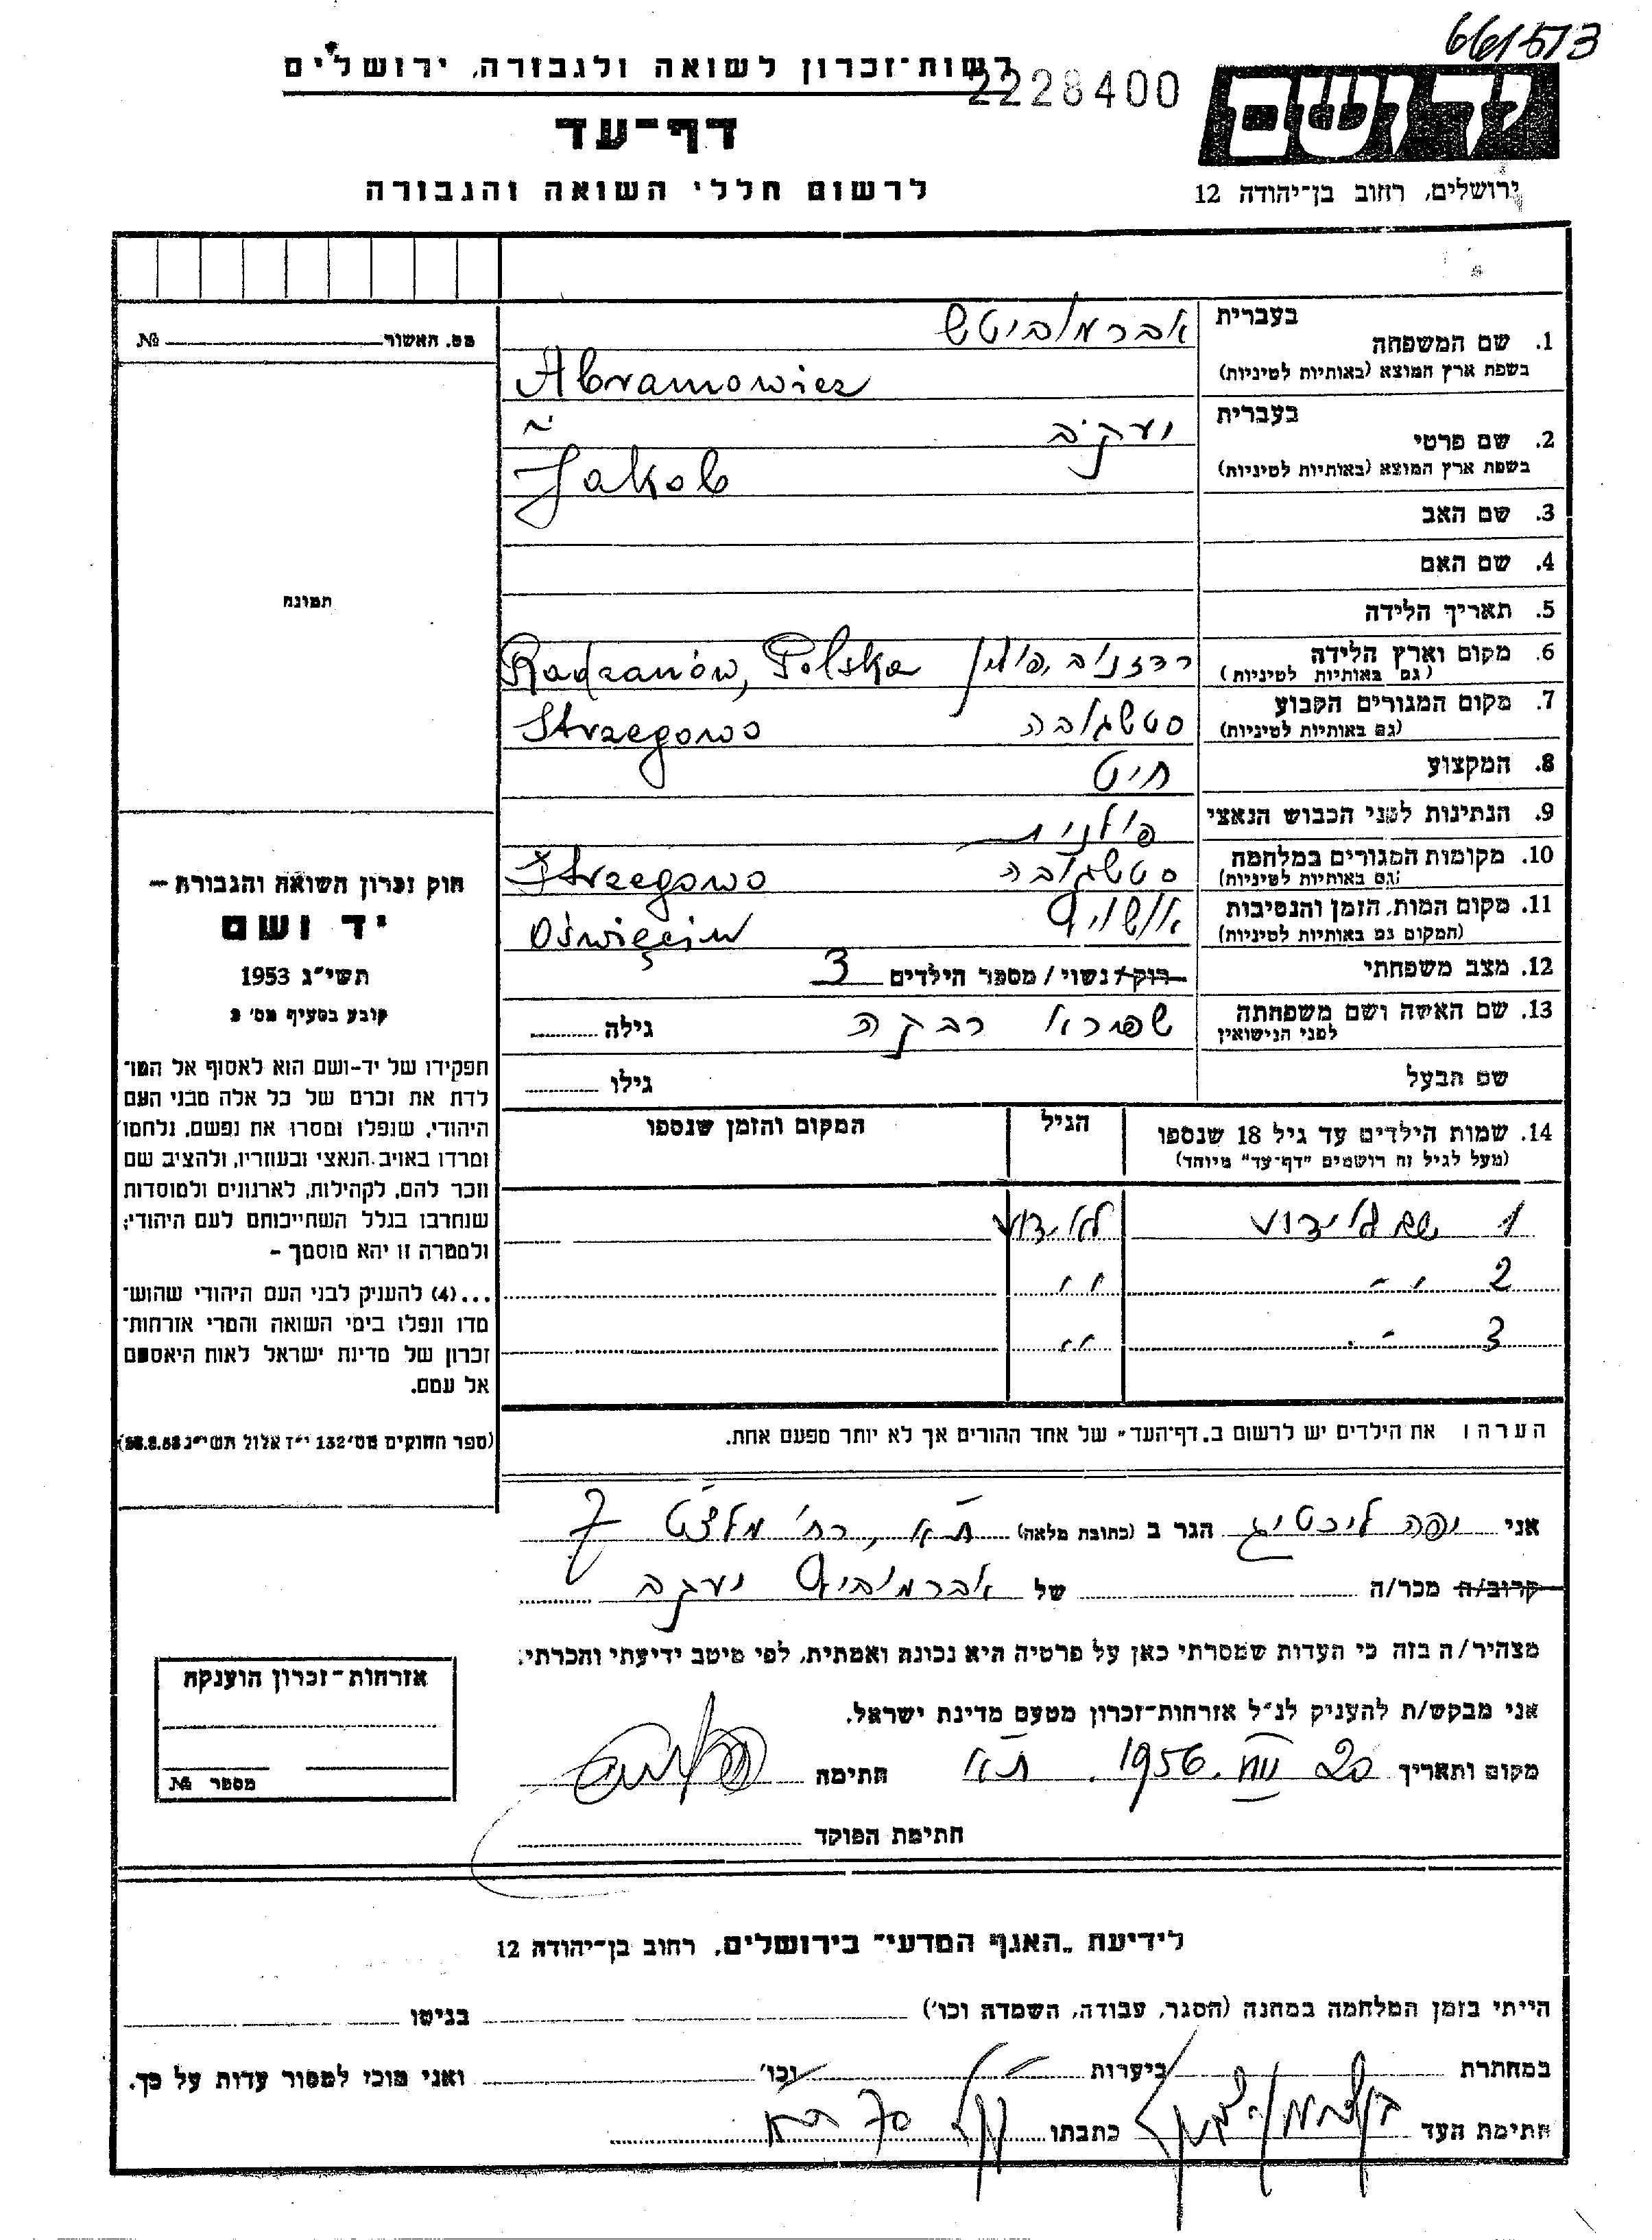 661573
רשות־זכרון לשואה ולגבורה, ירושלים
2228400
דף־עד
לרשום חללי השואה והגבורה
יד ושם
ירושלים, רחוב בן־יהודה 12
מס. האשור №
תמונה
1. שם המשפחה בעברית אברמוביטש
בשפת ארץ המוצא (באותיות לטיניות) Abramowicz
2. שם פרטי בעברית יעקב
בשפת ארץ המוצא (באותיות לטיניות) Jakob
3. שם האב
4. שם האם
5. תאריך הלידה
6. מקום וארץ הלידה (גם באותיות לטיניות) רדזנוב, פולין Radzanów, Polska
7. מקום המגורים הקבוע (גם באותיות לטיניות) סטשגובה Strzegowo
8. המקצוע חיט
9. הנתינות לפני הכבוש הנאצי פולנית
10. מקומות המגורים במלחמה (גם באותיות לטיניות) סטשגובה Strzegowo
11. מקום המות, הזמן והנסיבות (המקום גם באותיות לטיניות) אושויץ Oświęcim
12. מצב משפחתי רוק/נשוי/ מספר הילדים 3
13. שם האשה ושם משפחתה לפני הנישואין שפירא רבקה גילה
שם הבעל גילו
14. שמות הילדים עד גיל 18 שנספו הגיל המקום והזמן שנספו
(מעל לגיל זה רושמים "דף־עד" מיוחד)
1 שם לא ידוע לא ידוע
2 " " " "
3 " " "
הערה: את הילדים יש לרשום ב„דף־העד" של אחד ההורים אך לא יותר מפעם אחת.
חוק זכרון השואה והגבורה —
יד ושם
תשי"ג 1953
קובע בסעיף מס' 2
תפקידו של יד-ושם הוא לאסוף אל המו־
לדת את זכרם של כל אלה מבני העם
היהודי, שנפלו ומסרו את נפשם, נלחמו
ומרדו באויב הנאצי ובעוזריו, ולהציב שם
וזכר להם, לקהילות, לארגונים ולמוסדות
שנחרבו בגלל השתייכותם לעם היהודי;
ולמטרה זו יהא מוסמך –
...(4) להעניק לבני העם היהודי שהוש־
מדו ונפלו בימי השואה והמרי אזרחות־
זכרון של מדינת ישראל לאות היאספם
אל עמם.
(ספר החוקים מס' 132 י"ז אלול תשי"ג 28.8.53)
אני יפה ליכטיג הגר ב (כתובת מלאה) ת"א, רח' 7
קרוב/ה מכר/ה של אברמוביץ יעקב
מצהיר/ה בזה כי העדות שמסרתי כאן על פרטיה היא נכונה ואמתית, לפי מיטב ידיעתי והכרתי.
אני מבקש/ת להעניק לנ"ל אזרחות־זכרון מטעם מדינת ישראל.
מקום ותאריך 20 VIII. 1956. ת"א חתימה
חתימת הפוקד
אזרחות־זכרון הוענקה
מספר №
לידיעת „האגף המדעי" בירושלים, רחוב בן־יהודה 12
הייתי בזמן המלחמה במחנה (הסגר, עבודה, השמדה וכו') בגיטו
במחתרת ביערות וכו' ואני מוכן למסור עדות על כך.
חתימת העד כתבתו